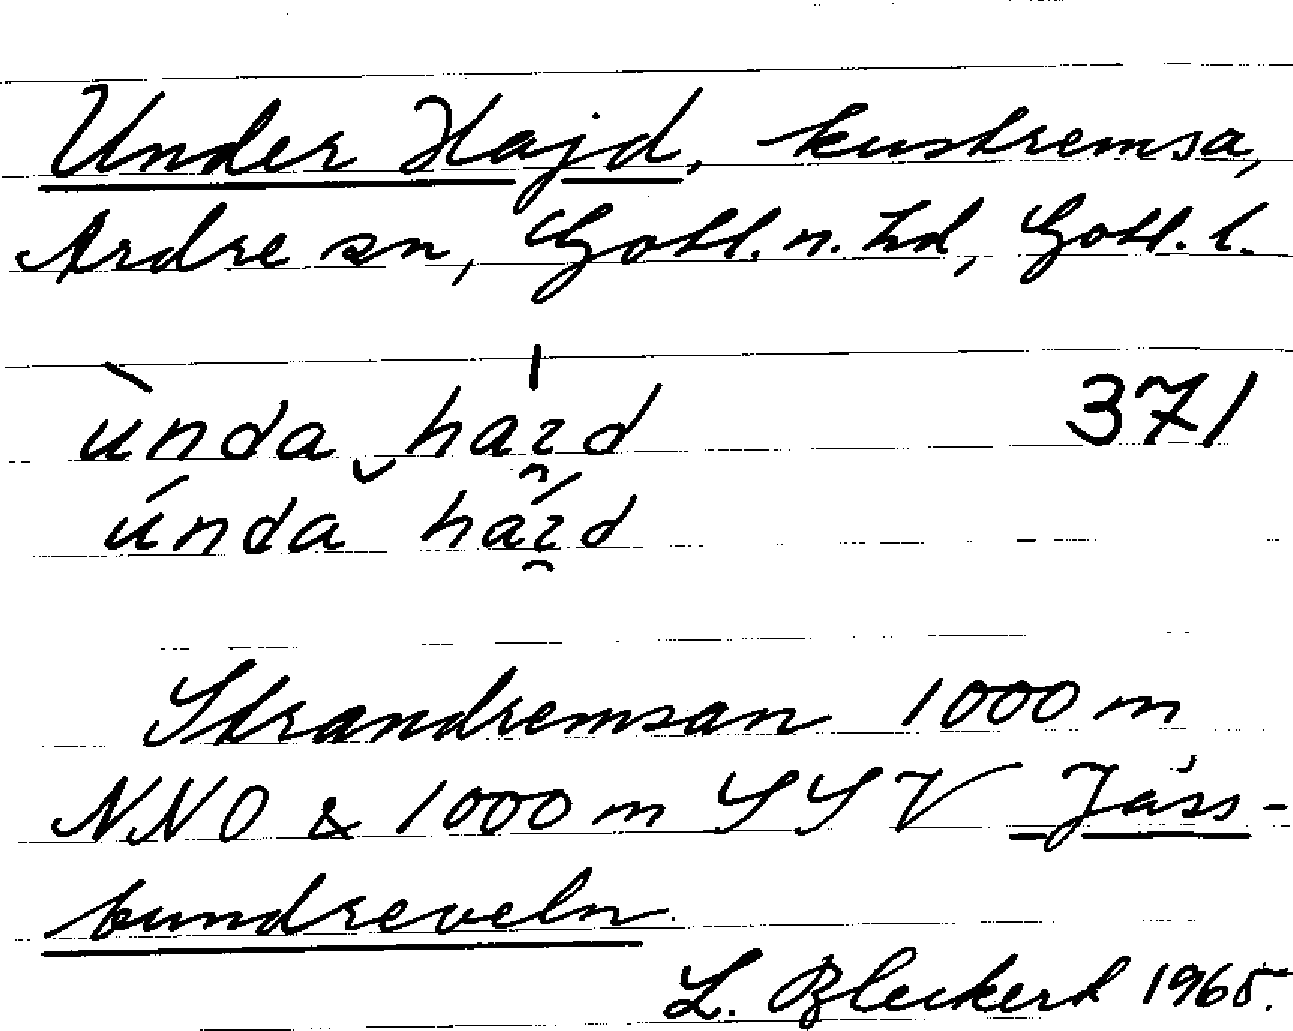 Under Hajd, kustremsa,
Ardre sn, Gotl. n. hd, Gotl. l.
ùnda haɪd 371
únda háɪd
Strandremsan 1000 m
NNO & 1000 m SSV Jåss-
bundreveln
L. Bleckert 1965.